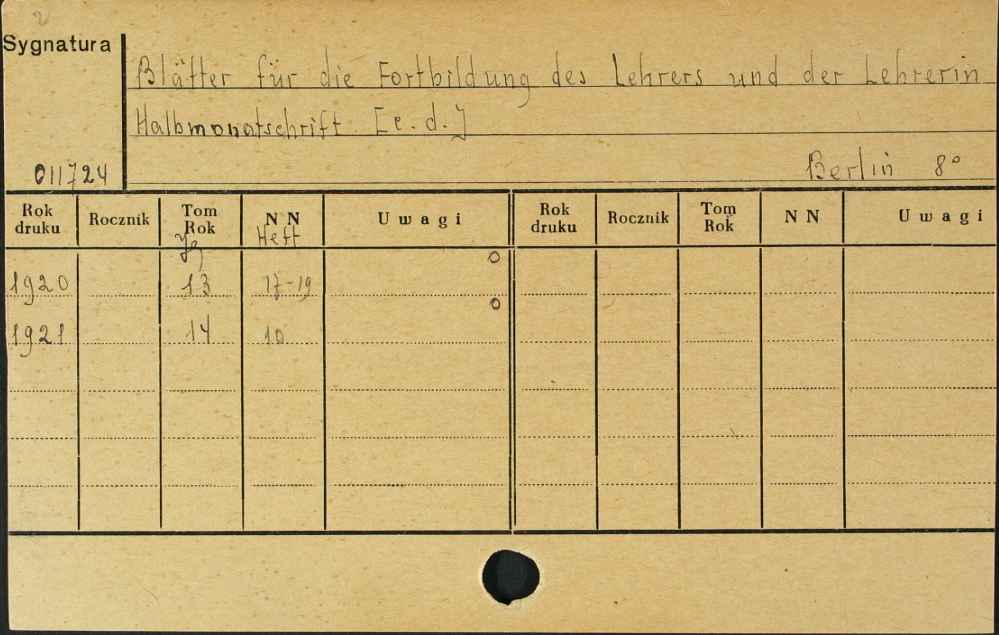 Sygnatura
Blätter für die Fortbildung des Lehrers und der Lehrerin
Halbmonatschrift. [e. d.]
011724
Berlin 8°
Rok druku Rocznik Tom Rok N N Uwagi Rok druku Rocznik Tom Rok N N Uwagi
Jg Heft
o
1920 13 17-19
o
1921 14 10